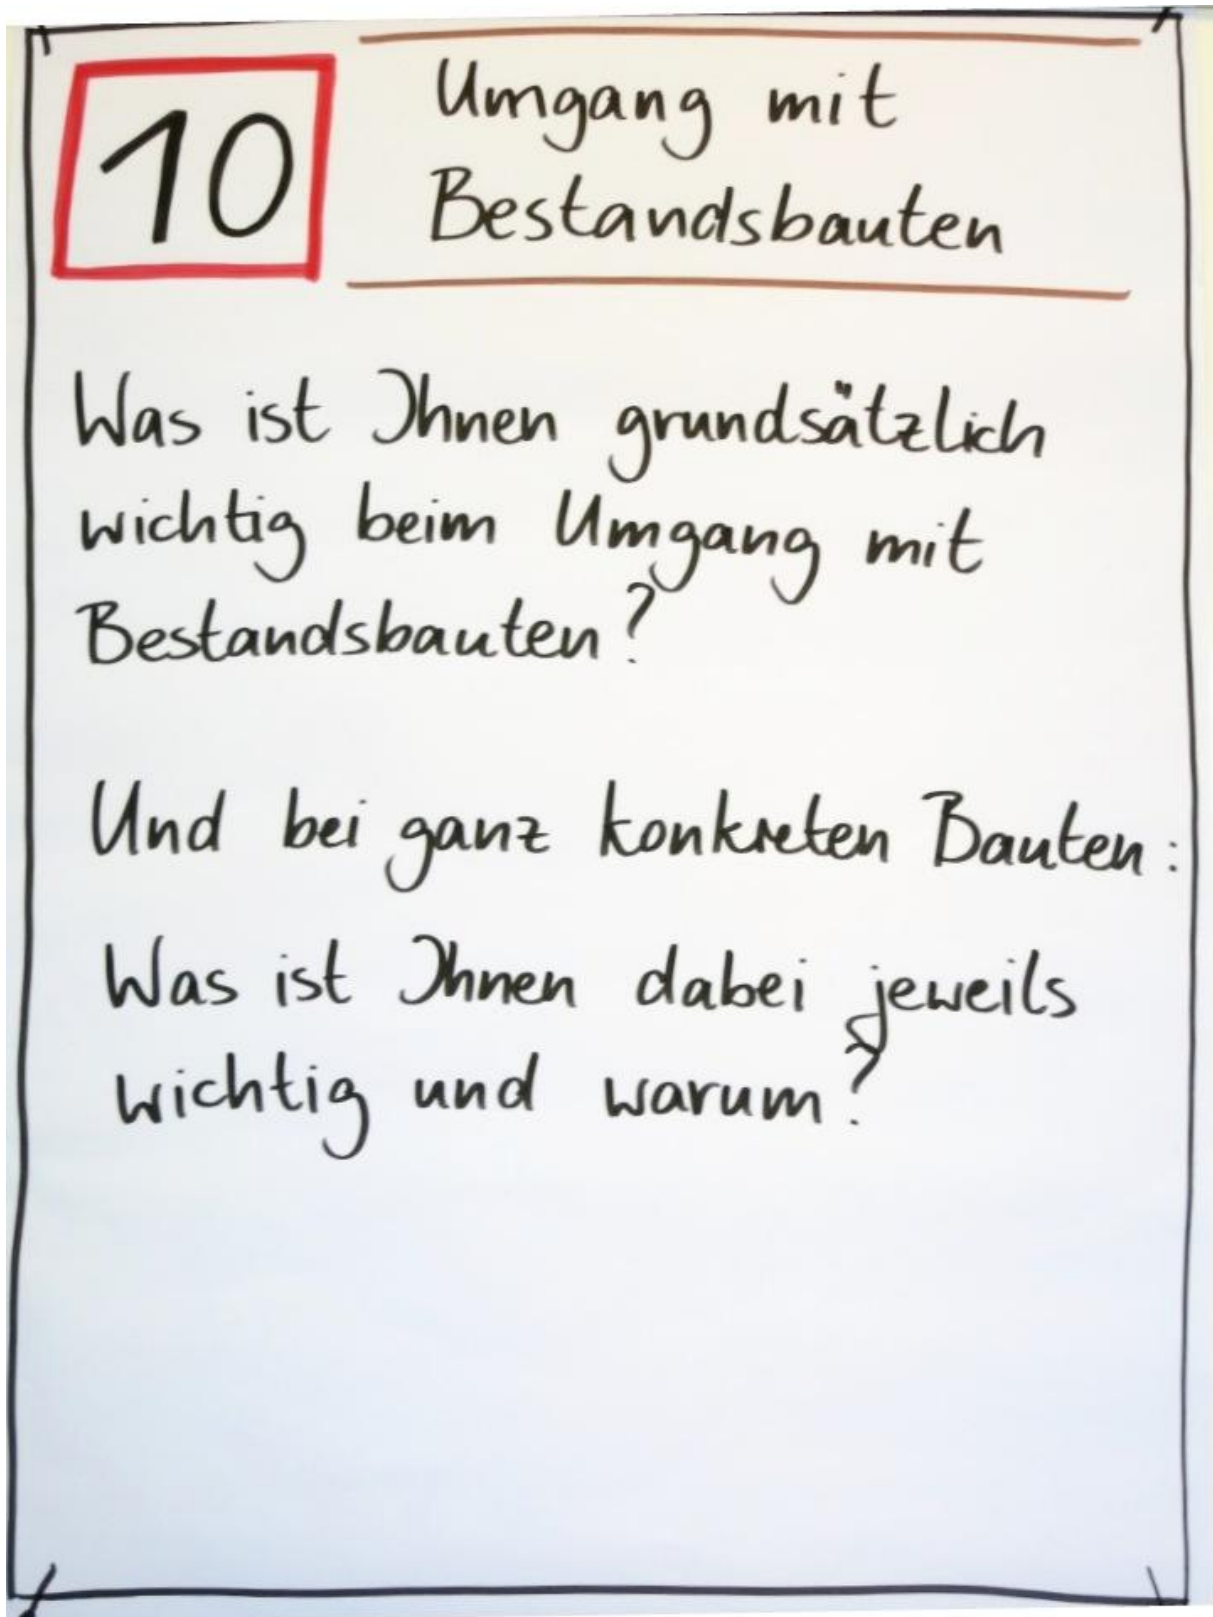 10
Umgang mit
Bestandsbauten
Was ist Ihnen grundsätzlich
wichtig beim Umgang mit
Bestandsbauten?
Und bei ganz konkreten Bauten:
Was ist Ihnen dabei jeweils
wichtig und warum?